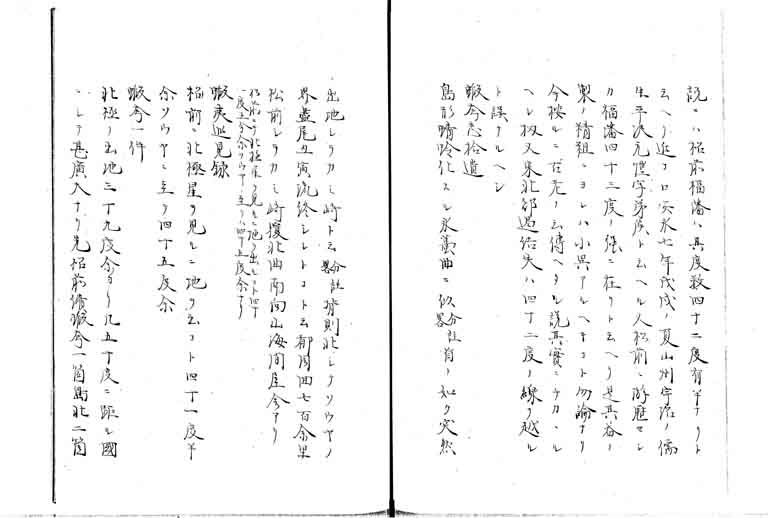 説ニハ松前福藩ハ其度数四十二度有半ナリト
云ヘリ近コロ安永七年戊戌ノ夏山州宇治ノ儒
生平沢元愷字弟侯ト云ヘル人松前ニ游歴セシ
カ福藩四十三度ノ強ニ在リト云ヘリ是其器ノ
製ノ精粗ニヨレハ小異アルヘキコト勿論ナリ
今按ルニ古老ノ云傳ヘタル説其實ニチカヽル
ヘシ扨又東北部過半失ハ四十二度ノ線ヲ越ル
ト誤ナルヘシ
蝦夷志拾遺
島形蜻蛉化スル水蠆曲ニ似 分註略 首ノ如ク突然
出地シレタカシ崎ト云 分註略 背則北シテソウヤノ
界盡尾丑寅流終シレトコト云都周囲七百余里
松前シレタカシ崎擾北曲南向山海間屋舎アリ
松前ニテ北極星ヲ見ルニ地ヲ出ルコト四十
一度半今余ソウヤニ至リテハ四十五度余アリ
蝦夷巡見録
松前ニ北極星ヲ見ルニ地ヲ出コト四十一度半
余ソウヤニ至リ四十五度余
蝦夷一件
北極ノ出地三十九度余ヨリ凡五十度ニ距ル國
ニシテ甚廣大ナリ先松前續蝦夷一箇島北二箇